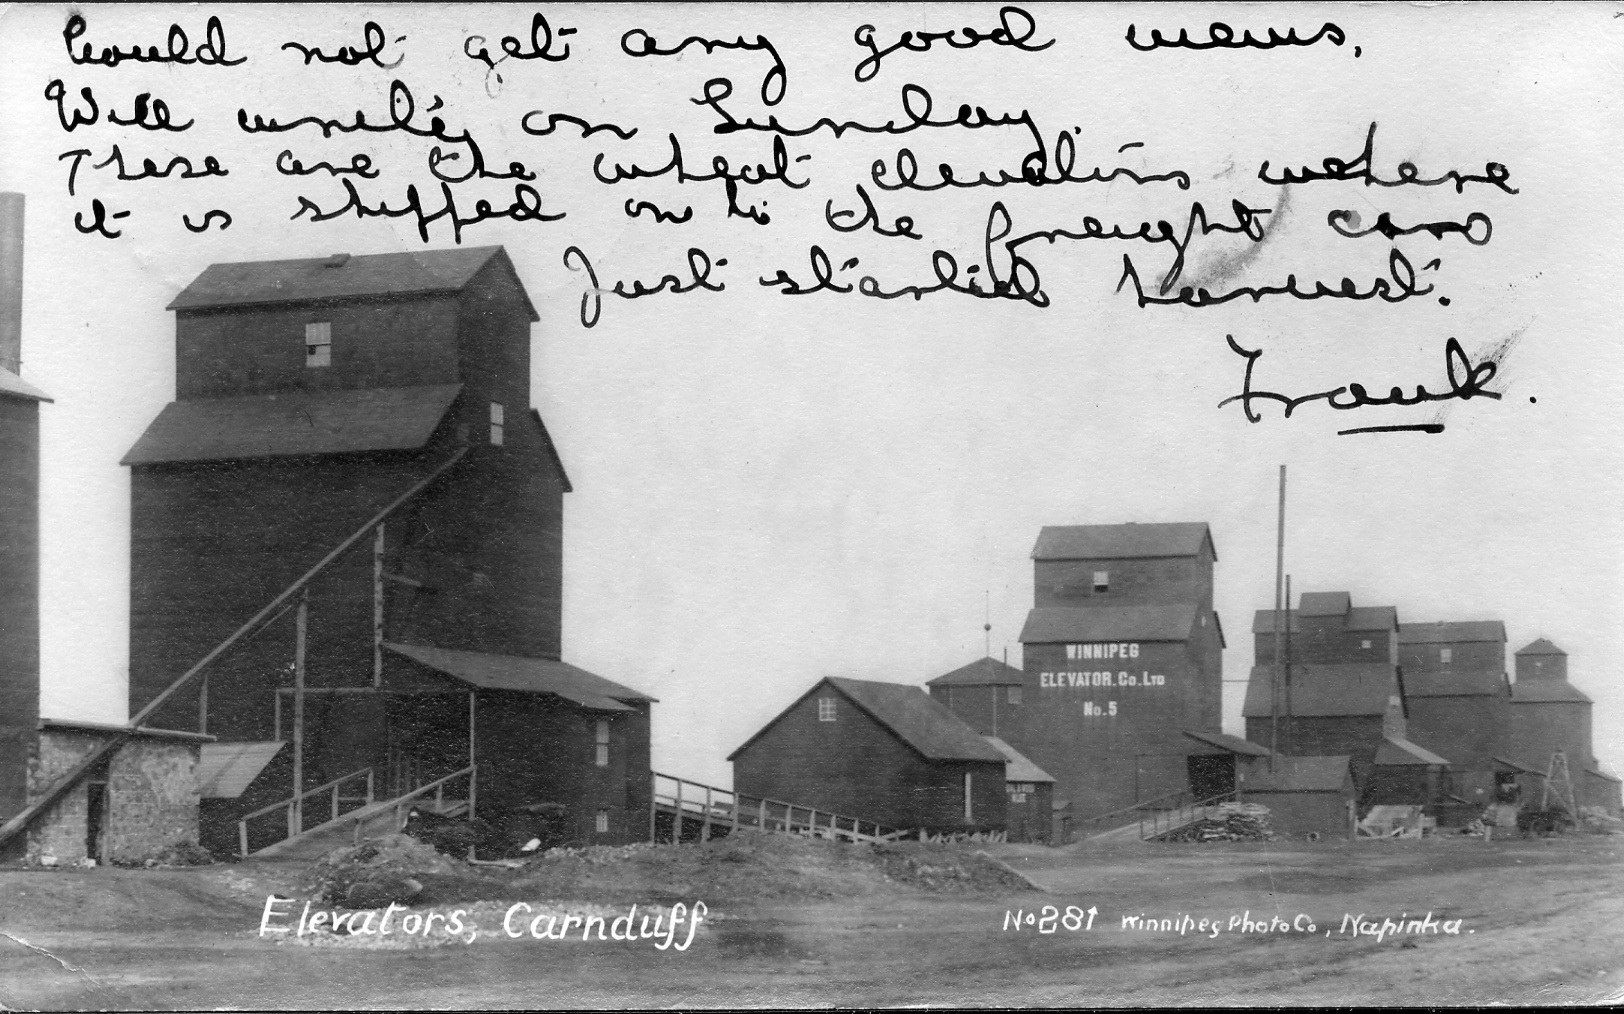 Could not get any good views.
Will write on Sunday.
These are the wheat elevators where
it is shipped on to the freight cars
Just started harvest.
Frank.
WINNIPEG
ELEVATOR. Co. LTD
No. 5
Elevators, Carnduff
No 281 Winnipeg Photo Co, Napinka.